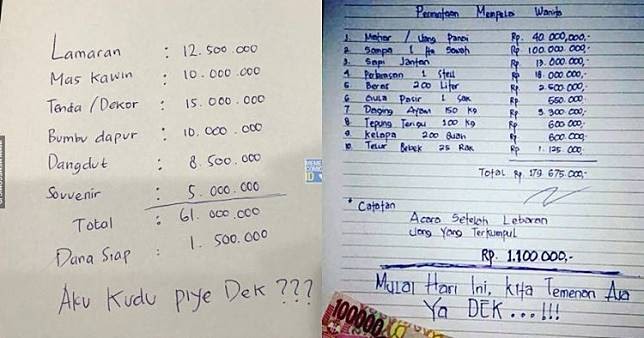 Lamaran : 12.500.000
Mas Kawin : 10.000.000
Tenda/Dekor : 15.000.000
Bumbu dapur : 10.000.000
Dangdut : 8.500.000
Souvenir : 5.000.000
Total : 61.000.000
Dana Siap : 1.500.000
Aku Kudu piye Dek ???
Permintaan Mempelai Wanita
1. Mahar / Uang Panai Rp. 40.000,000,-
2. Sompa 1 Ha Sawah Rp 100.000.000,-
3. Sapi Jantan Rp. 13.000.000,-
4. Perhiasan 1 Stell Rp 18.000.000,-
5. Beras 200 Liter Rp 2.500.000,-
6. Gula Pasir 1 Sak Rp 550.000,-
7. Daging Ayam 150 Kg Rp 3.300.000,-
8. Tepung Terigu 100 Kg Rp 600.000,-
9. Kelapa 200 Buah Rp 600.000,-
10. Telur Bebek 25 Rak Rp 1.125.000,-
Total Rp 179.675.000,-
* Catatan
Acara Setelah Lebaran
Uang Yang Terkumpul
Rp. 1.100.000,-
Mulai Hari Ini, kita Temenan Aja
Ya DEK...!!!
100000